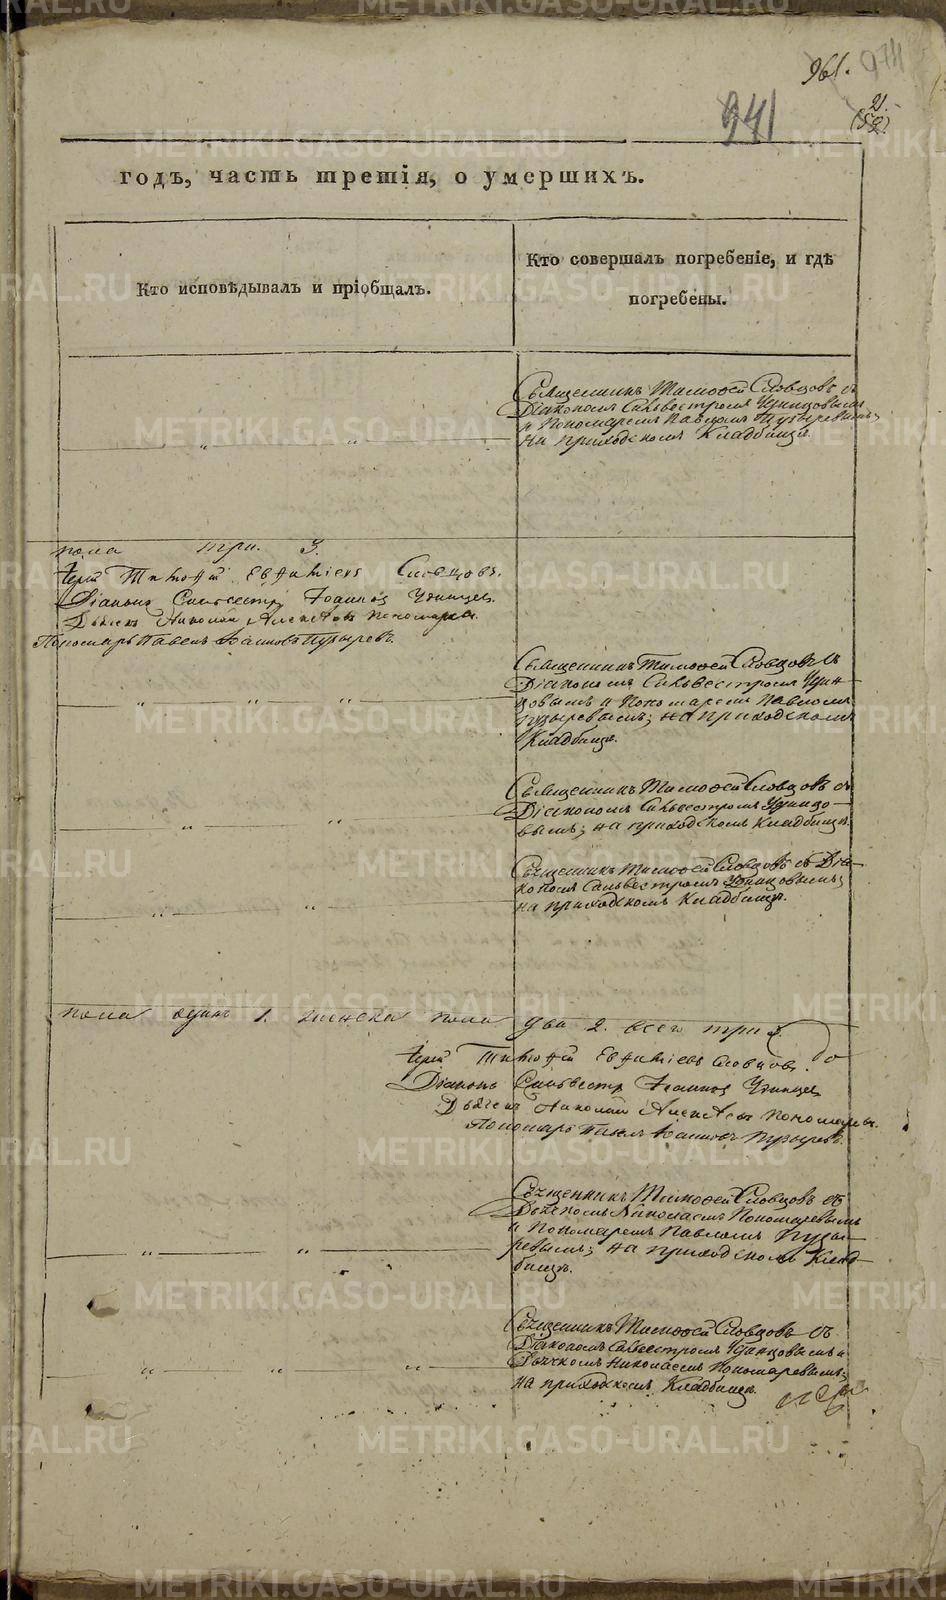 961. 974
941
21.
(52)
годъ, часть третія, о умершихъ.
Кто исповѣдывалъ и пріобщалъ.
Кто совершалъ погребеніе, и гдѣ
погребены.
Священникъ Тимоѳей Словцовъ съ
Діакономъ Сильвестромъ Удинцовымъ
и Пономаремъ Павломъ Пузыревымъ;
на приходскомъ Кладбищѣ.
пола три. 3.
Іерей Тимоѳей Евѳиміевъ Словцовъ.
Діаконъ Сильвестръ Іоанновъ Удинцев
Дьячекъ Николай Алексѣевъ Пономаревъ.
Пономарь Павелъ Іоанновъ Пузыревъ.
Священникъ Тимоѳей Словцовъ съ
Діакономъ Сильвестромъ Удин-
цовымъ и Пономаремъ Павломъ
Пузыревымъ; на приходскомъ
Кладбищѣ.
Священникъ Тимоѳей Словцовъ съ
Діакономъ Сильвестромъ Удинцо-
вымъ; на приходскомъ Кладбищѣ.
Священникъ Тимоѳей Словцовъ съ Діа-
кономъ Сильвестромъ Удинцовымъ;
на приходскомъ Кладбищѣ.
пола одинъ 1. женска пола два 2. всего три 3.
Іерей Тимоѳей Евѳиміевъ Словцовъ.
Діаконъ Сильвестръ Іоанновъ Удинцев
Дьячекъ Николай Алексѣевъ Пономаревъ.
Пономарь Павелъ Іоанновъ Пузыревъ.
Священникъ Тимоѳей Словцовъ съ
Дьячкомъ Николаемъ Пономаревымъ
и Пономаремъ Павломъ Пузы-
ревымъ; на приходскомъ Клад-
бищѣ.
Священникъ Тимоѳей Словцовъ съ
Діакономъ Сильвестромъ Удинцовымъ и
Дьячкомъ Николаемъ Пономаревымъ;
на приходскомъ Кладбищѣ.
METRIKI.GASO-URAL.RU